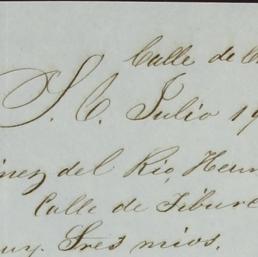 Calle de
S. C. Julio 19
nez del Rio, Herm
Calle de Tibur
uy. Sres mios.